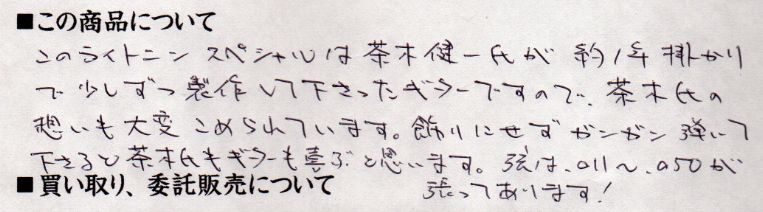 ■この商品について
このライトニン スペシャルは茶木健一氏が 約1年掛かり
で少しずつ製作して下さったギターですので、茶木氏の
想いも大変こめられています。飾りにせずガンガン弾いて
下さると茶木氏もギターも喜ぶと思います。弦は、.011〜.050が
■買い取り、委託販売について
張ってあります!